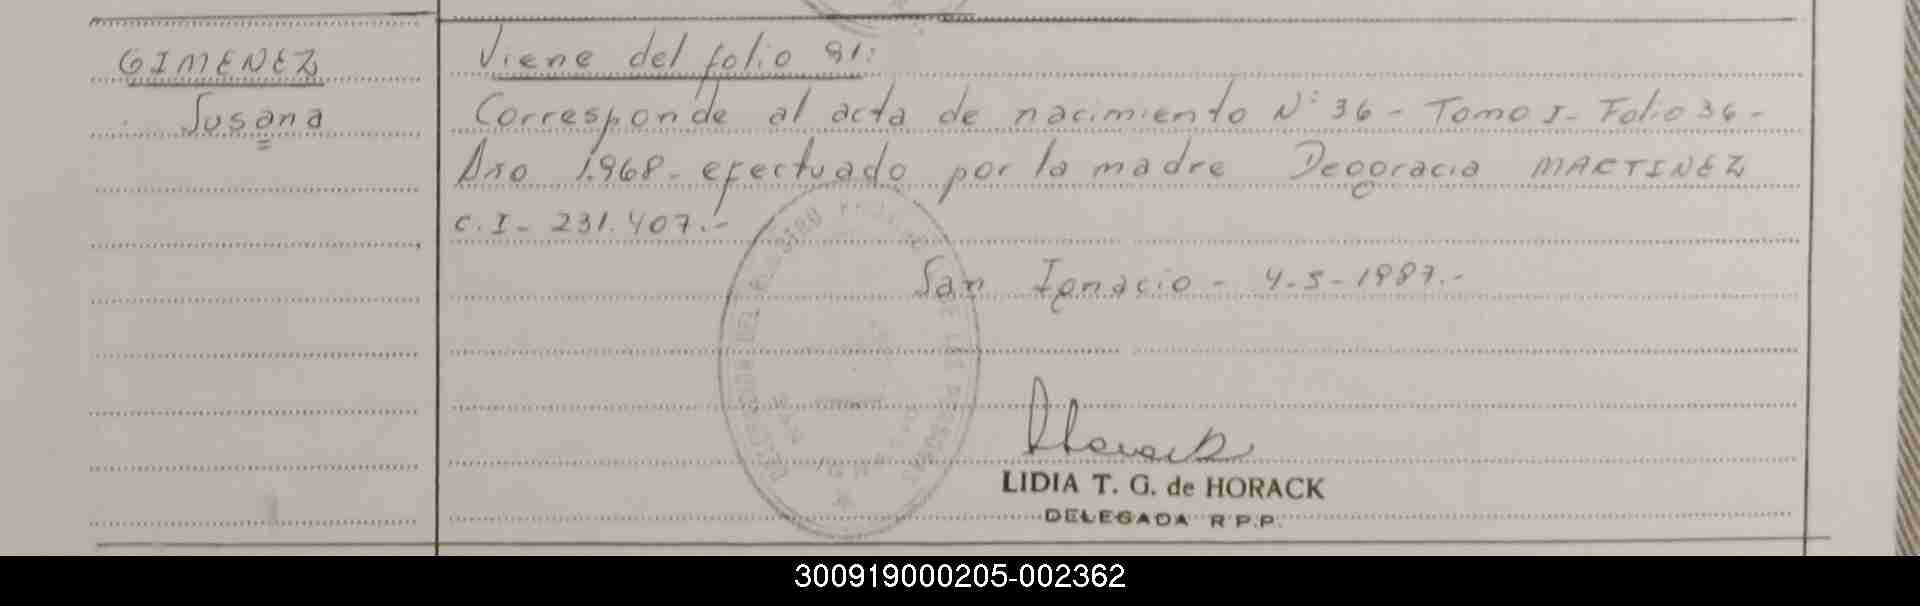 GIMENEZ
Susana
Viene del folio 81:
Corresponde al acta de nacimiento N: 36 - Tomo I - Folio 36 -
Año 1.968 - efectuado por la madre Deogracia MARTINEZ
C.I - 231.407.-
San Ignacio - 4-5-1987.-
Horack
LIDIA T. G. de HORACK
DELEGADA R.P.P.
300919000205-002362